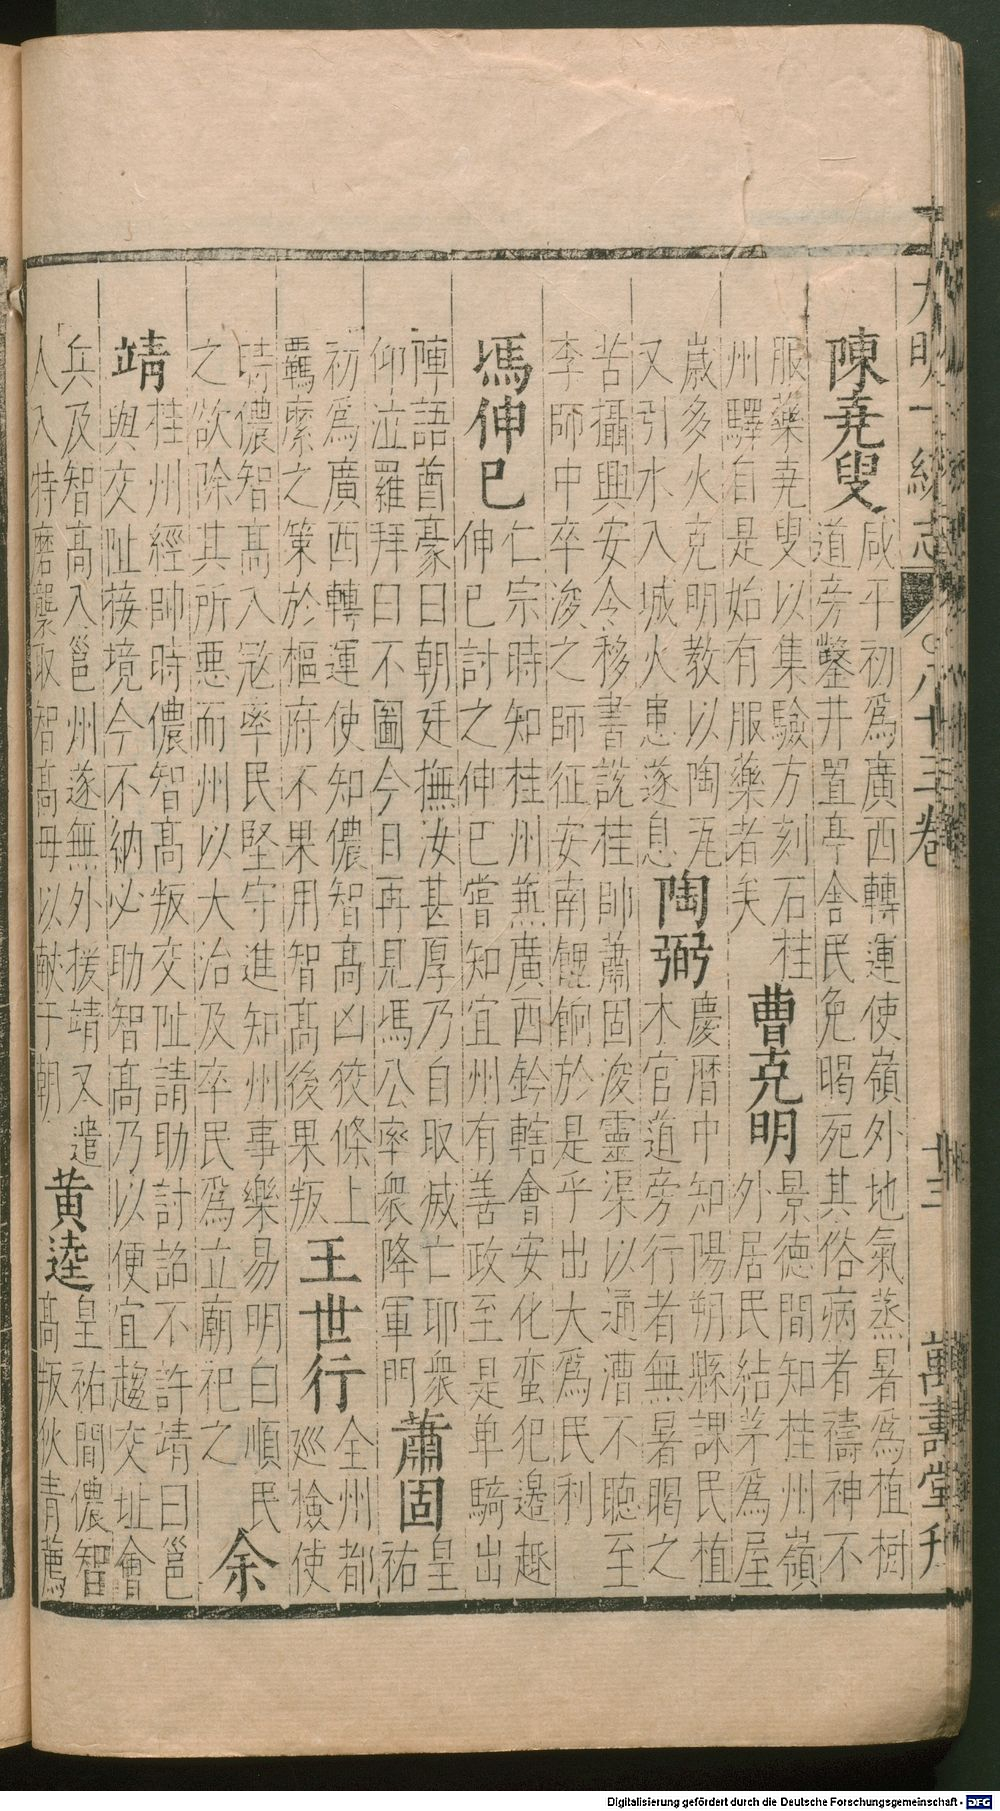 大明一統志 八十三卷 十三 萬壽堂刋
陳堯叟 咸平初爲廣西轉運使嶺外地氣蒸暑爲植樹
道旁鑿井置亭舍民免暍死其俗病者禱神不
服藥堯叟以集驗方刻石桂
州驛自是始有服藥者矣 曹克明 景德間知桂州嶺
外居民結茅爲屋
歲多火克明教以陶瓦
又引水入城火患遂息 陶弼 慶曆中知陽朔縣課民植
木官道旁行者無暑暍之
苦攝興安令移書說桂帥蕭固浚靈渠以通漕不聽至
李師中卒浚之師征安南餽餉於是乎出大爲民利
馮伸巳 仁宗時知桂州兼廣西鈐轄會安化蠻犯邊趣
伸巳討之伸巳嘗知宜州有善政至是单騎出
陣語酋豪曰朝廷撫汝甚厚乃自取滅亡耶衆
仰泣羅拜曰不圖今日再見馮公率衆降軍門 蕭固 皇
祐
初爲廣西轉運使知儂智高凶狡條上
羈縻之策於樞府不果用智高後果叛 王世行 全州都
廵檢使
時儂智高入冦率民堅守進知州事樂易明白順民
之欲除其所惡而州以大治及卒民爲立廟祀之 余
靖 桂州經帥時儂智高叛交阯請助討詔不許靖曰邕
與交阯接境今不納必助智高乃以便宜趨交址會
兵及智高入邕州遂無外援靖又遣
人入特磨襲取智高母以献于朝 黄逵 皇祐間儂智
高叛狄青薦
Digitalisierung gefördert durch die Deutsche Forschungsgemeinschaft - DFG